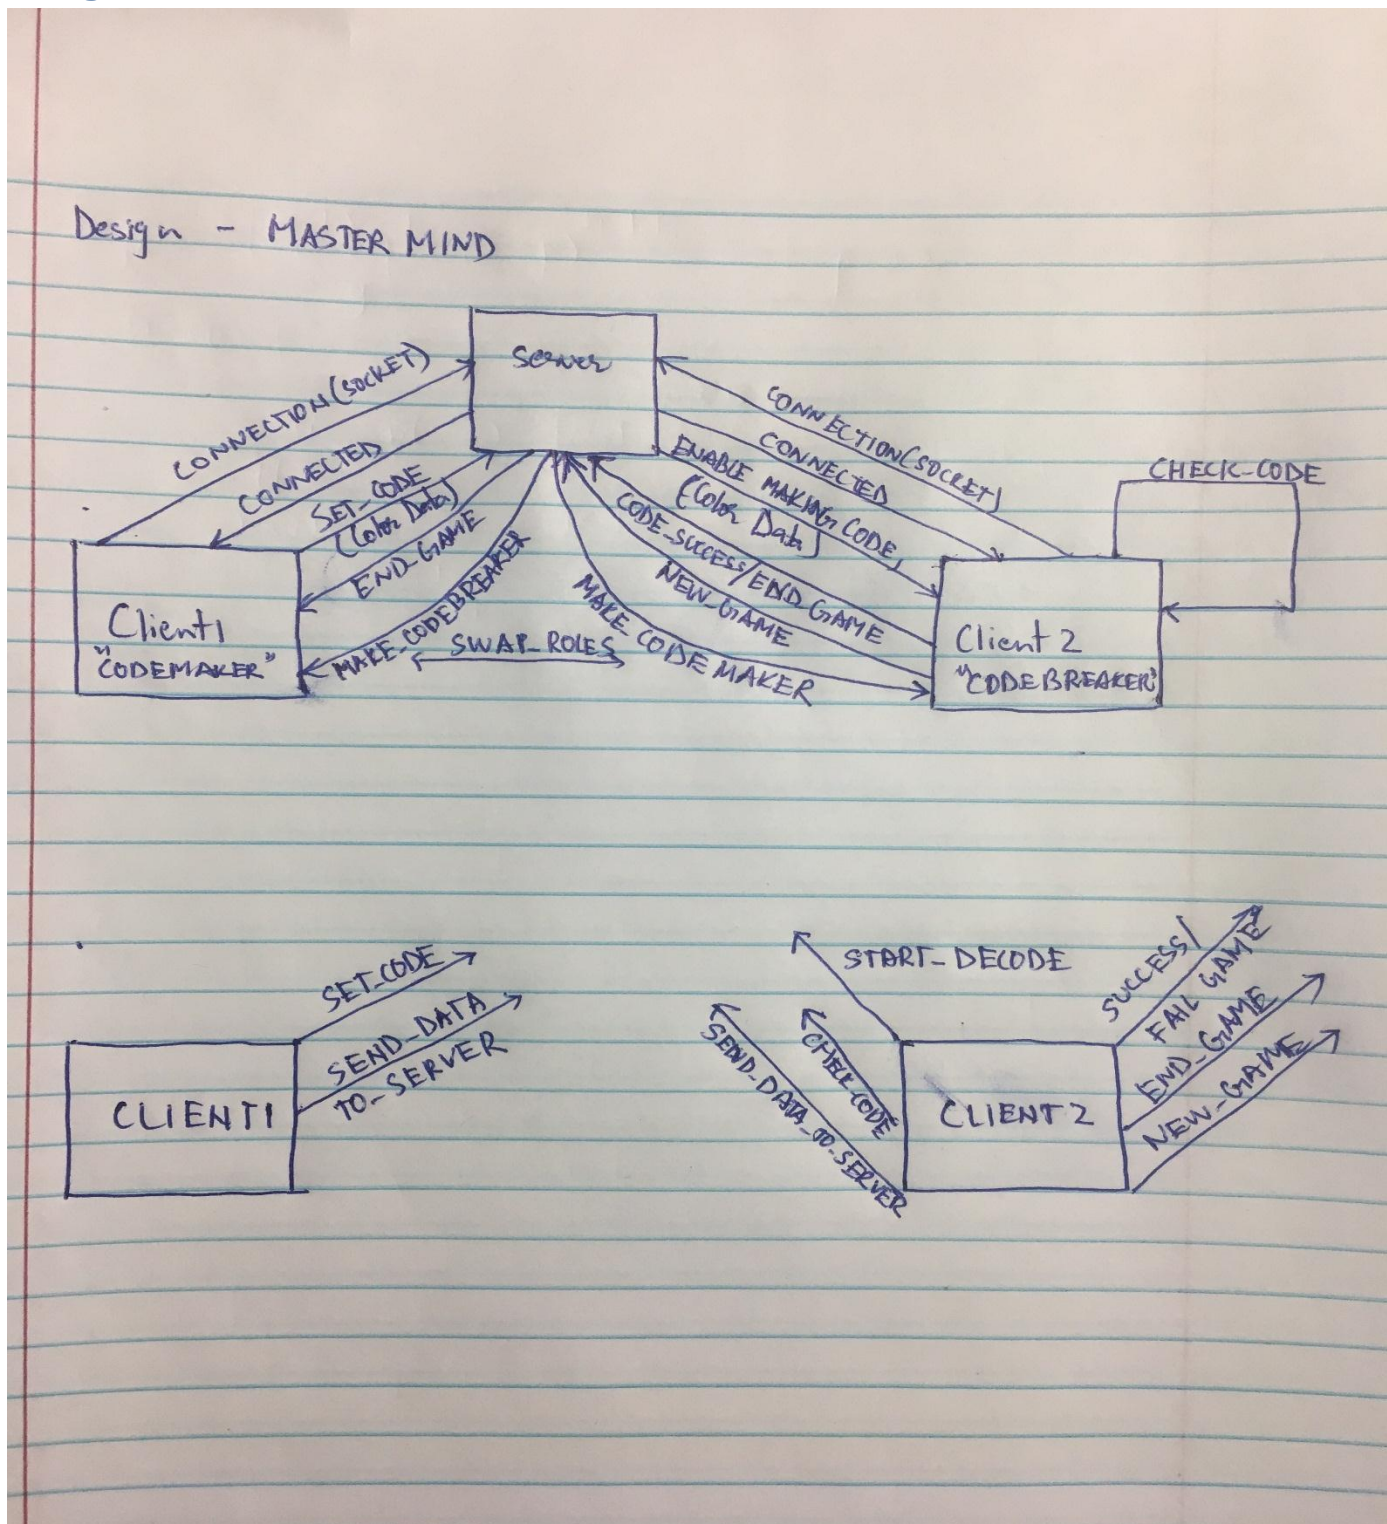 Design - MASTER MIND
Server
CONNECTION (SOCKET)
CONNECTED
SET_CODE
(Color Data)
END_GAME
MAKE_CODEBREAKER
SWAP_ROLES
MAKE_CODE MAKER
NEW_GAME
CODE_SUCCESS/END_GAME
ENABLE MAKING CODE,
(Color Data)
CONNECTED
CONNECTION(SOCKET)
CHECK-CODE
Client1
"CODEMAKER"
Client 2
"CODEBREAKER"
SET_CODE
SEND_DATA
TO_SERVER
CLIENT1
START_DECODE
CHECK_CODE
SEND_DATA_TO_SERVER
CLIENT 2
SUCCESS/
FAIL GAME
END_GAME
NEW_GAME